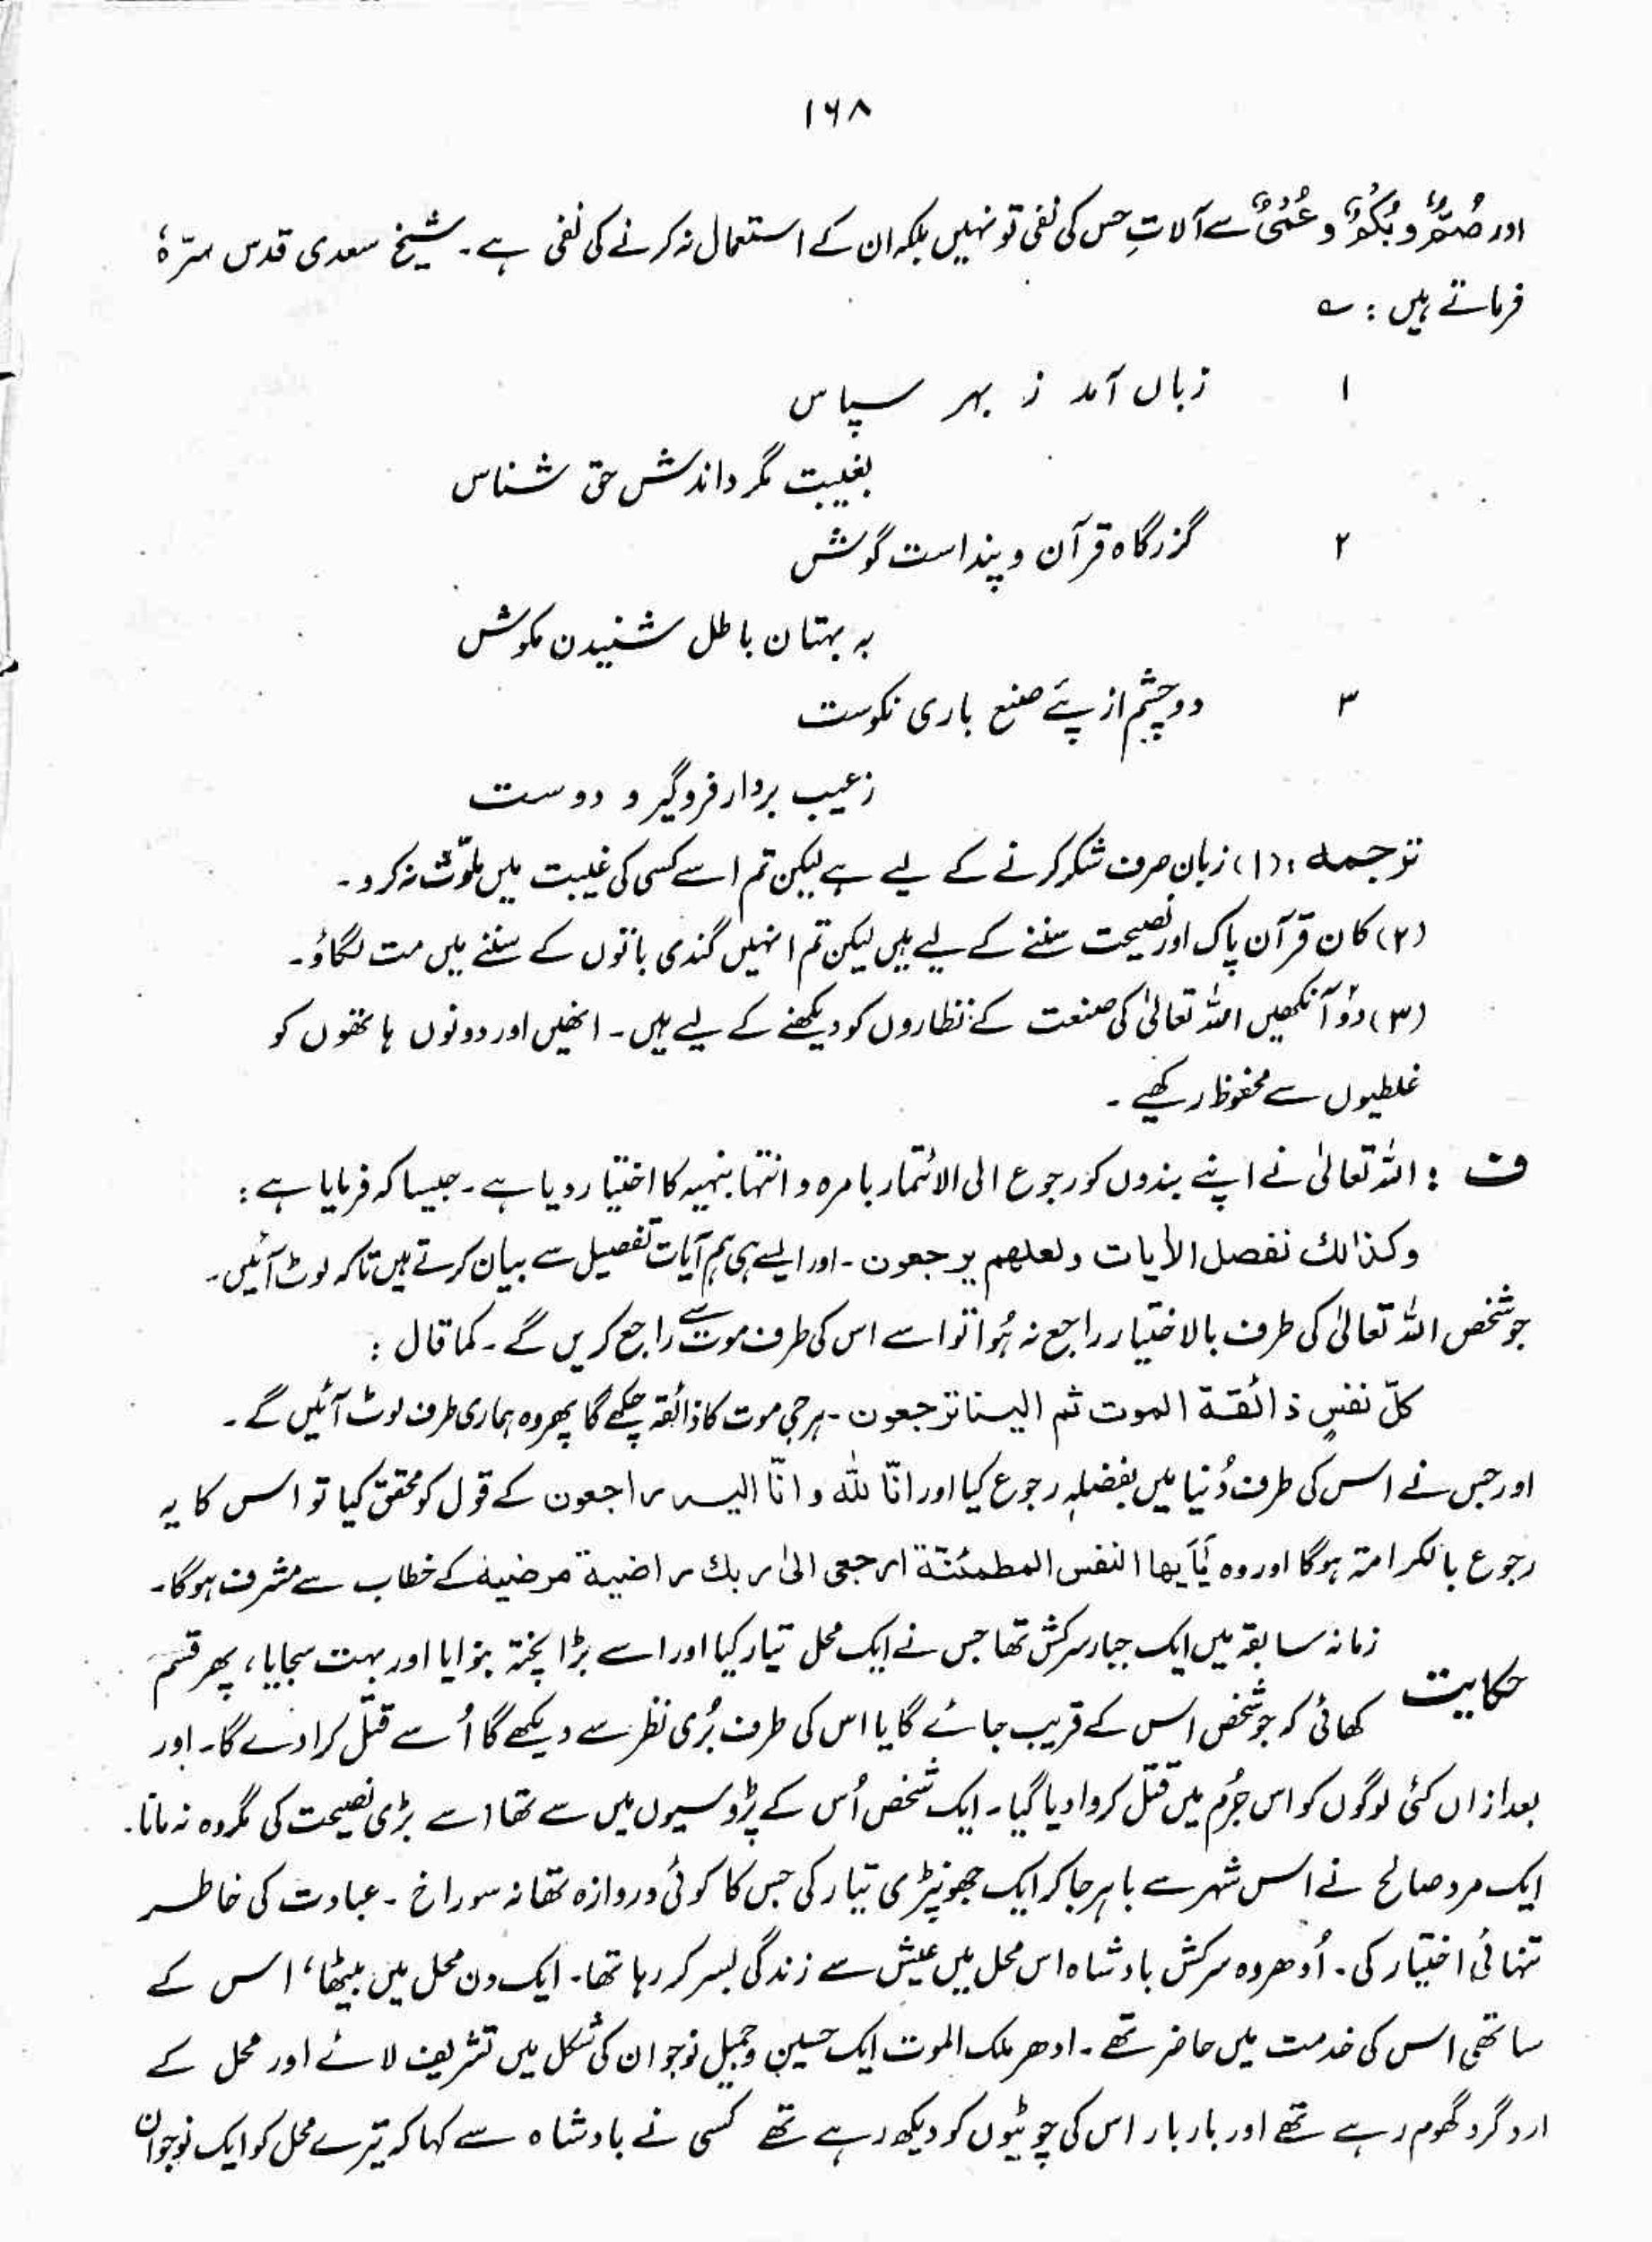 ۱۶۸
اور صُمٌّ و بُكْمٌ و عُمْیٌ سے آلاتِ حس کی نفی تو نہیں بلکہ ان کے استعمال نہ کرنے کی نفی ہے۔ شیخ سعدی قدس سرّہٗ
فرماتے ہیں : ؎
۱ زباں آمد ز بہر سپاس
بغیبت مگرداندش حق شناس
۲ گزرگاہ قرآن و پند است گوش
بہ بہتان باطل شنیدن مکوش
۳ دو چشم از پئے صنع باری نکوست
زعیب بردار فروگیر و دوست
ترجمہ : (۱) زبان صرف شکر کرنے کے لیے ہے لیکن تم اسے کسی کی غیبت میں ملوّث نہ کرو۔
(۲) کان قرآن پاک اور نصیحت سننے کے لیے ہیں لیکن تم انہیں گندی باتوں کے سننے میں مت لگاؤ۔
(۳) دوٗ آنکھیں اللہ تعالیٰ کی صنعت کے نظاروں کو دیکھنے کے لیے ہیں۔ انھیں اور دونوں ہاتھوں کو
غلطیوں سے محفوظ رکھیے ۔
ف : اللہ تعالیٰ نے اپنے بندوں کو رجوع الی الائتمار بامرہ و انتہا بنہیہ کا اختیار دیا ہے۔ جیسا کہ فرمایا ہے :
وكذالك نفصل الأيات ولعلهم يرجعون ۔ اور ایسے ہی ہم آیات تفصیل سے بیان کرتے ہیں تاکہ لوٹ آئیں۔
جو شخص اللہ تعالیٰ کی طرف بالاختیار راجع نہ ہُوا تو اسے اس کی طرف موت سے راجع کریں گے۔ کما قال :
كلّ نفسٍ ذائقة الموت ثم الينا ترجعون ۔ ہر جی موت کا ذائقہ چکھے گا پھر وہ ہماری طرف لوٹ آئیں گے ۔
اور جس نے اس کی طرف دُنیا میں بفضلہٖ رجوع کیا اور انّا للہ و انّا الیہ راجعون کے قول کو محقق کیا تو اس کا یہ
رجوع بالکرامتہ ہوگا اور وہ يٰٓاَيها النفس المطمئنة ارجعى الىٰ ربك راضية مرضية کے خطاب سے مشرف ہوگا۔
زمانہ سابقہ میں ایک جبار سرکش تھا جس نے ایک محل تیار کیا اور اسے بڑا پختہ بنوایا اور بہت سجایا، پھر قسم
حکایت کھائی کہ جو شخص اس کے قریب جائے گا یا اس کی طرف بُری نظر سے دیکھے گا اُسے قتل کرا دے گا۔ اور
بعد ازاں کئی لوگوں کو اس جُرم میں قتل کروا دیا گیا۔ ایک شخص اُس کے پڑوسیوں میں سے تھا اسے بڑی نصیحت کی مگر وہ نہ مانا۔
ایک مرد صالح نے اس شہر سے باہر جا کر ایک جھونپڑی تیار کی جس کا کوئی دروازہ تھا نہ سوراخ ۔ عبادت کی خاطر
تنہائی اختیار کی۔ اُدھر وہ سرکش بادشاہ اس محل میں عیش سے زندگی بسر کر رہا تھا۔ ایک دن محل میں بیٹھا، اس کے
ساتھی اس کی خدمت میں حاضر تھے۔ ادھر ملک الموت ایک حسین و جمیل نوجوان کی شکل میں تشریف لائے اور محل کے
ارد گرد گھوم رہے تھے اور بار بار اس کی چوٹیوں کو دیکھ رہے تھے کسی نے بادشاہ سے کہا کہ تیرے محل کو ایک نوجوان